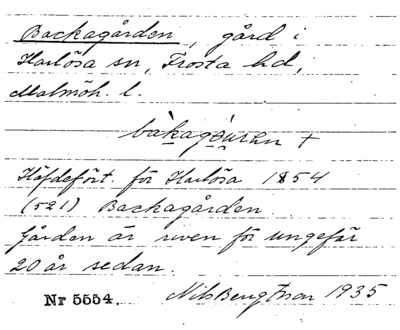 Backagården, gård i
Harlösa sn, Frosta hd,
Malmöh. l.
Häfdefört. för Harlösa 1854
(521) Backagården.
Gården är riven för ungefär
20 år sedan.
Nr 5554. Nils Bengtsson 1935